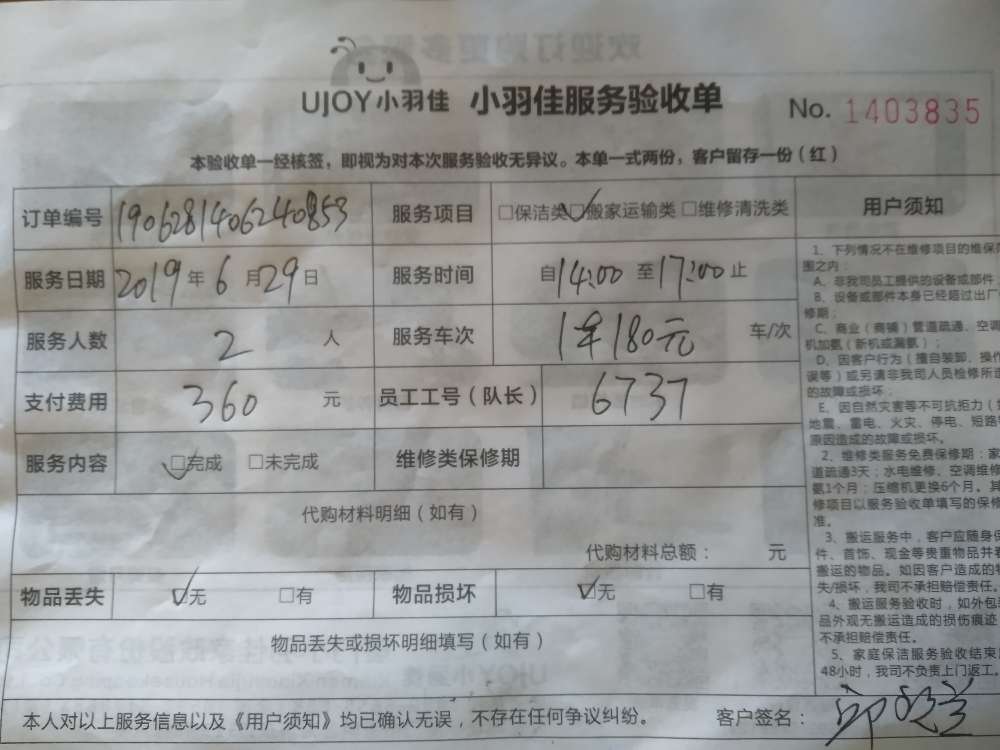 UJOY小羽佳 小羽佳服务验收单 No. 1403835
本验收单一经核签，即视为对本次服务验收无异议。本单一式两份，客户留存一份（红）
订单编号 1906281406240853 服务项目 □保洁类 ☑搬家运输类 □维修清洗类
服务日期 2019年6月29日 服务时间 自14:00至17:00止
服务人数 2 人 服务车次 1车180元 车/次
支付费用 360 元 员工工号（队长） 6737
服务内容 ☑完成 □未完成 维修类保修期
代购材料明细（如有）
代购材料总额： 元
物品丢失 ☑无 □有 物品损坏 ☑无 □有
物品丢失或损坏明细填写（如有）
本人对以上服务信息以及《用户须知》均已确认无误，不存在任何争议纠纷。 客户签名：
用户须知
1、下列情况不在维修项目的维保
围之内：
A、非我司员工提供的设备或部件
B、设备或部件本身已经超过出厂
修期；
C、商业（商铺）管道疏通、空调
机加氨（新机或漏氨）；
D、因客户行为（擅自装卸、操作
误等）或另请非我司人员检修所造
的故障或损坏；
E、因自然灾害等不可抗拒力（
地震、雷电、火灾、停电、短路
原因造成的故障或损坏。
2、维修类服务免费保修期：家
道疏通3天；水电维修、空调维修
氨1个月；压缩机更换6个月。其
修项目以服务验收单填写的保修
准。
3、搬运服务中，客户应随身保
件、首饰、现金等贵重物品并
搬运的物品。如因客户造成的
失/损坏，我司不承担赔偿责任。
4、搬运服务验收时，如外包
品外观无搬运造成的损伤痕迹
不承担赔偿责任。
5、家庭保洁服务验收结束
48小时，我司不负责上门返工。